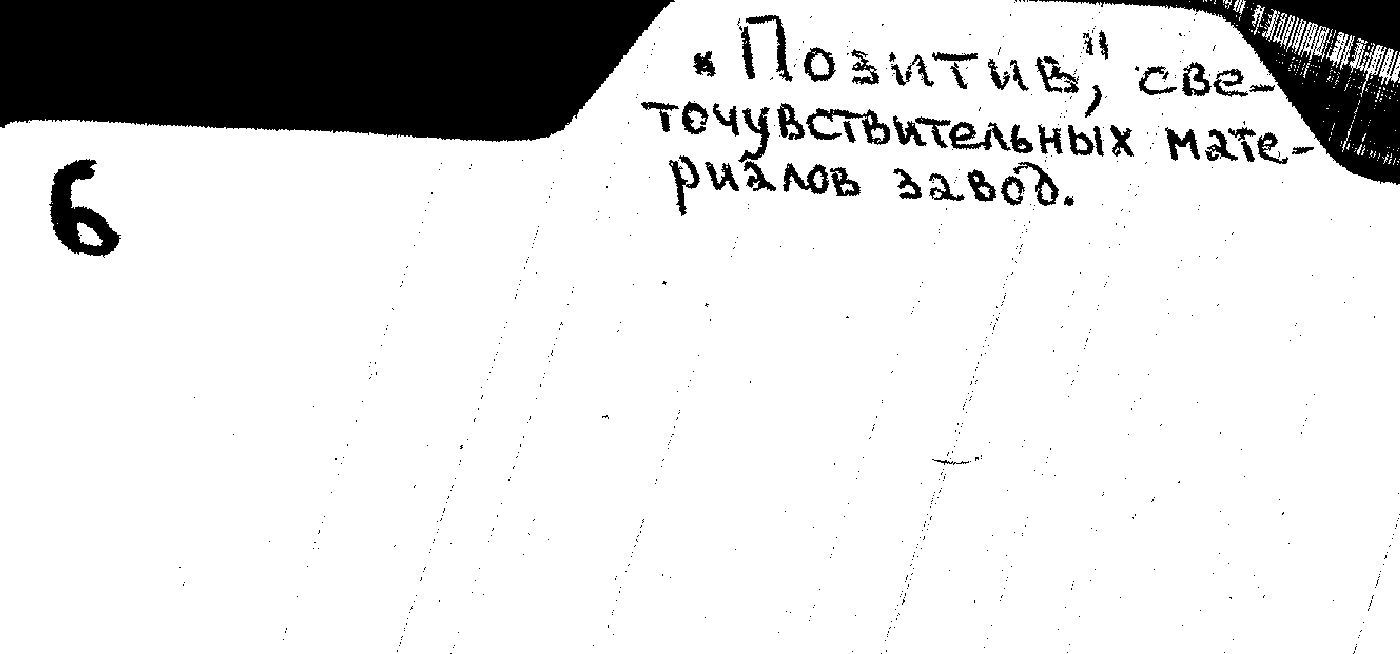 «Позитив", све-
точувствительных мате-
риалов завод.
6